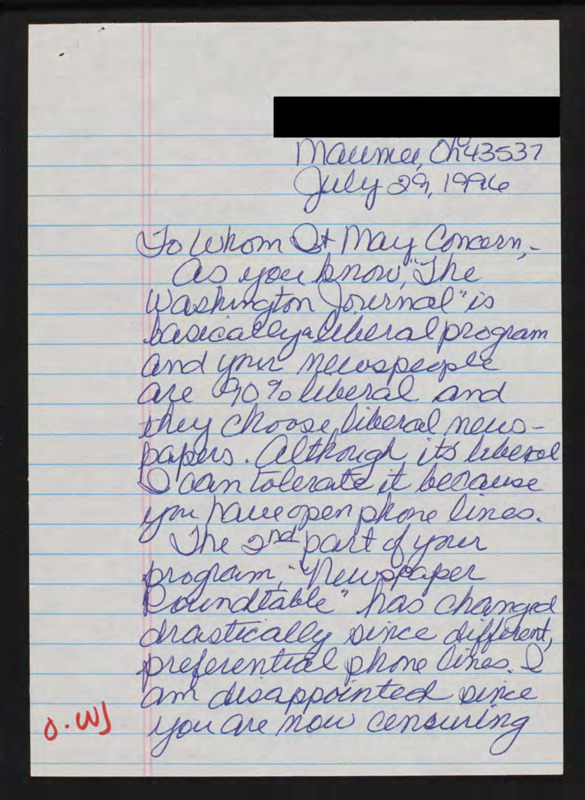 Maumee, Oh 43537
July 29, 1996
To Whom It May Concern,-
As you know, "The
Washington Journal" is
basically a liberal program
and your newspeople
are 90% liberal and
they choose liberal news-
papers. Although its liberal
I can tolerate it because
you have open phone lines.
The 2nd part of your
program, "Newspaper
Roundtable" has changed
drastically since different,
preferential phone lines. I
am disappointed since
you are now censuring
O. WJ